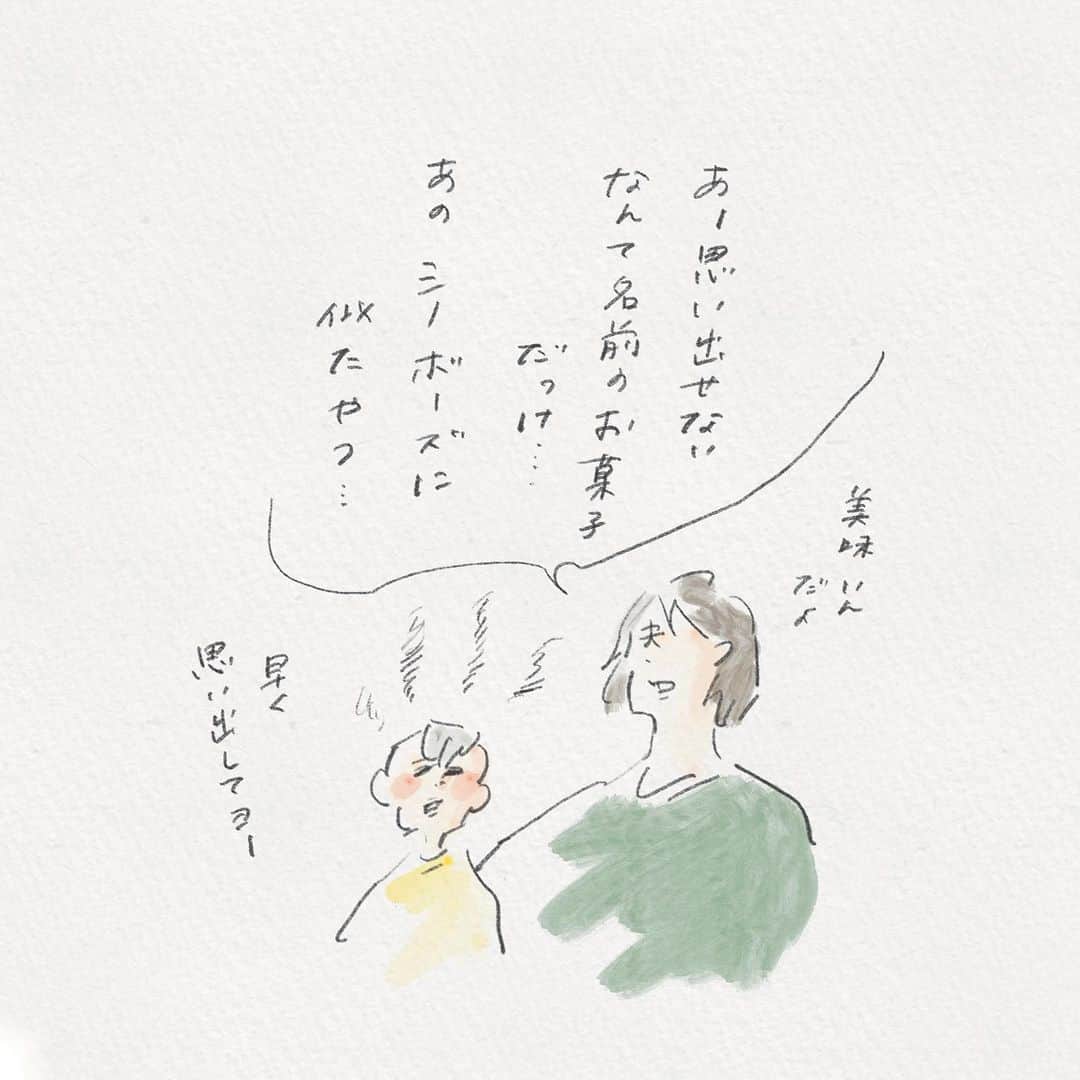 あー思い出せない
なんて名前のお菓子
だっけ…
あの シーボーズに
似たやつ…
美味いん
だよ
夫
早く
思い出してヨー